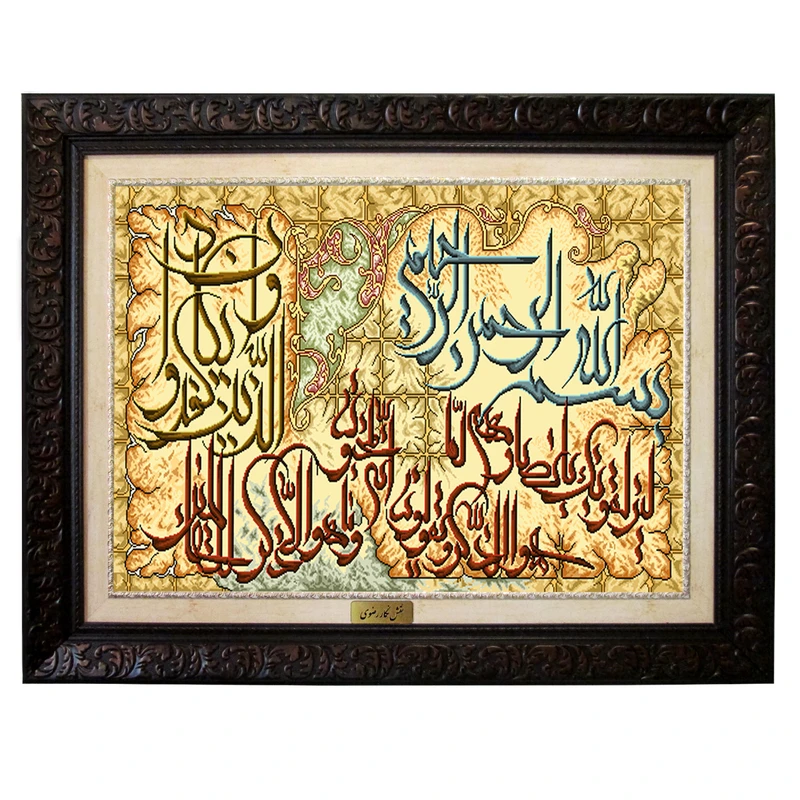 بسم الله الرحمن الرحیم
وان یکاد الذین کفروا
لیزلقونک بابصارهم لما
سمعوا الذکر ویقولون انه لمجنون
وما هو الا ذکر للعالمین
نقش نگار رضوی